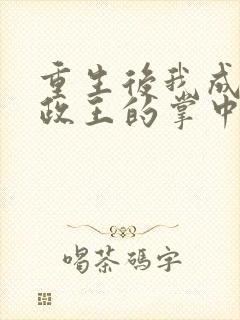 重生後我成
政王的掌中
喝茶碼字